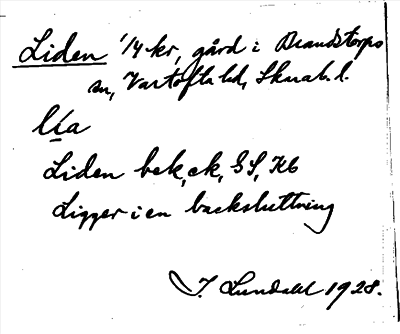 Liden 1/4 kr, gård i Brandstorps
sn, Vartofta hd, Skarab. l.
lía
Liden bek, ek, GS, Kb
Ligger i en backsluttning
I. Lundahl 1928.